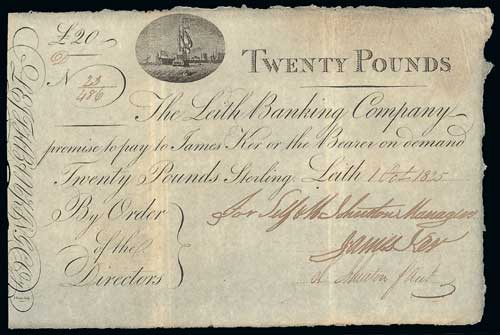 £20
TWENTY POUNDS
N 23/486
The Leith Banking Company
promise to pay to James Ker or the Bearer on demand
Twenty Pounds Sterling. Leith 1 Oct 1825
By Order
of the
Directors
for Self & Manager
James Ker